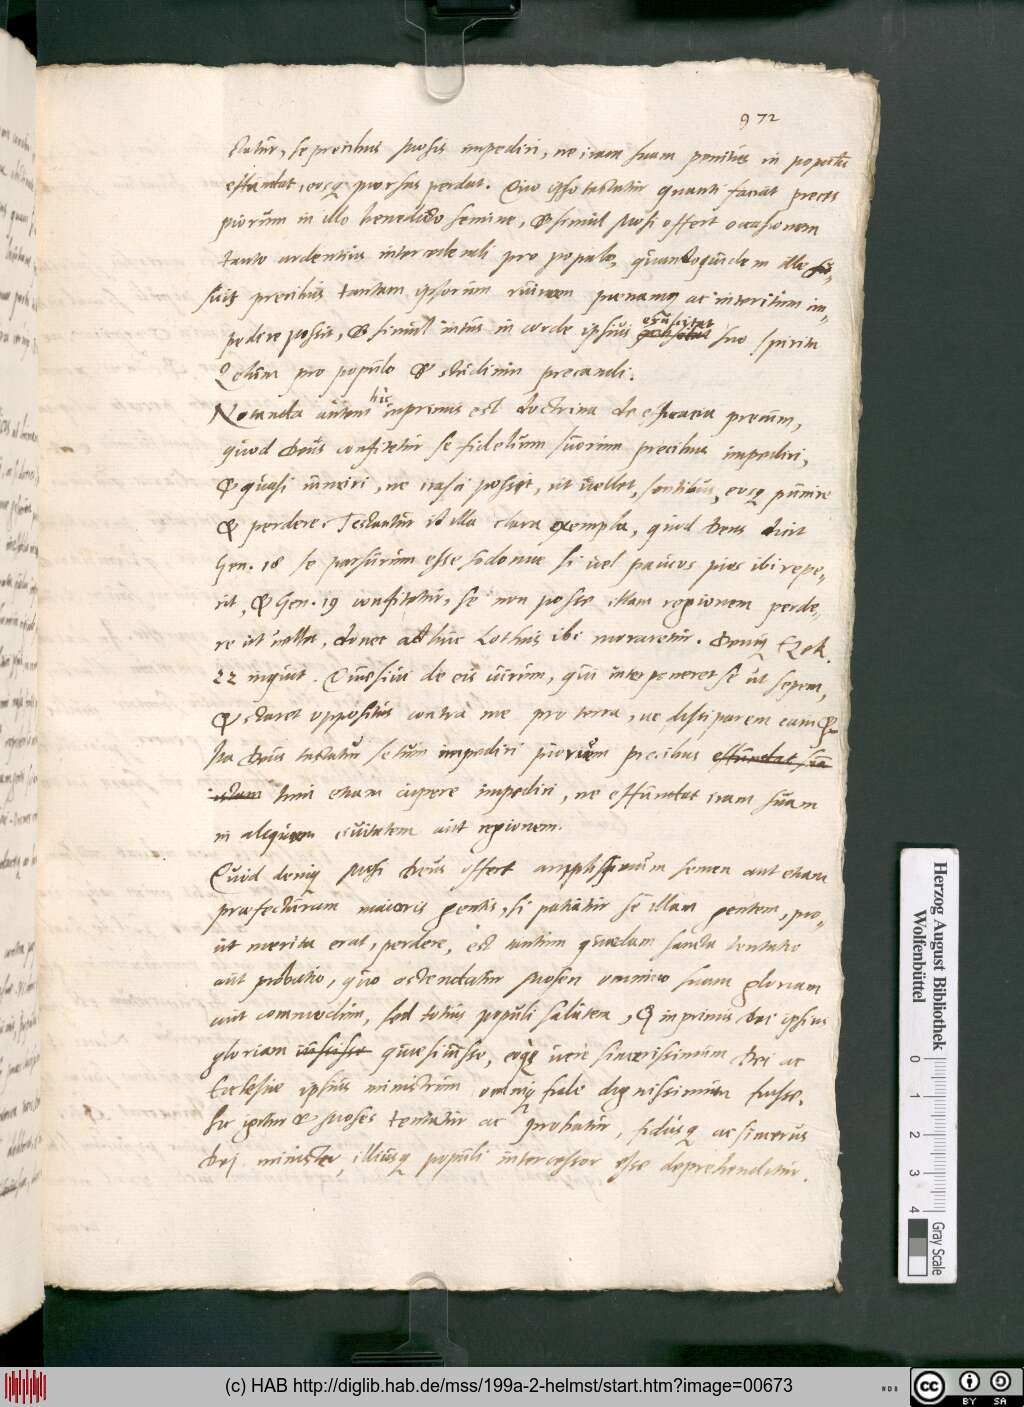 972
statur, se precibus Mosis impediri, ne iram suam penitus in populū
effundat, eosq prorsus perdat. Quo ipso testatur quanti faciat preces
piorum in illo benedicto semine, & simul Mosi offert occasionem
tanto ardentius intercedendi pro populo, quandoquidem ille
suis precibus tantam ipsorum ruinam poenamq ac interitum im-
pedire possit, & simul intus in corde ipsius exuscitat suo spiritu
Zelum pro populo & studium precandi.
Notanda autem hic inprimis est doctrina de efficacia precum,
quod Deus confitetur se fidelium suorum precibus impediri,
& quasi vinciri, ne irasci possit, ut vellet, sontibus, eosq punire
& perdere. Testantur id illa clara exempla, quod Deus dicit
Gen. 18 se parsurum esse Sodomae si vel paucos pios ibi repe-
rit, & Gen. 19 confitetur, se non posse illam regionem perde-
re ut vellet, donec adhuc Lothus ibi moraretur. Deniq Ezek.
22 inquit. Quaesivi de eis virum, qui interponeret se ut sepem,
& staret oppositus contra me pro terra, ne dissiparem eam &c
Ita Deus testatur se tum impediri piorum precibus effundat suā
istam tum etiam cupere impediri, ne effundat iram suam
in aliquam civitatem aut regionem.
Quid deniq Mosi Deus offert amplissimum semen aut etiam
praefecturam maioris gentis, si patiatur se illam gentem, pro-
ut merita erat, perdere, est tantum quaedam sancta tentatio
aut probatio, quo ostendatur Mosen omnino suam gloriam
aut commodum, sed totius populi salutem, & inprimis Dei ipsius
gloriam quaesiuisse, eoqe vere sincerissimum Dei ac
Ecclesiae ipsius ministrum omniq fide dignissimum fuisse.
Sic igitur & Moses tentatur ac probatur, fidusq ac sincerus
Dei minister, illiusq populi intercessor esse deprehenditur.
Herzog August Bibliothek
Wolfenbüttel
0 1 2 3 4
Gray Scale
(c) HAB http://diglib.hab.de/mss/199a-2-helmst/start.htm?image=00673
cc BY SA